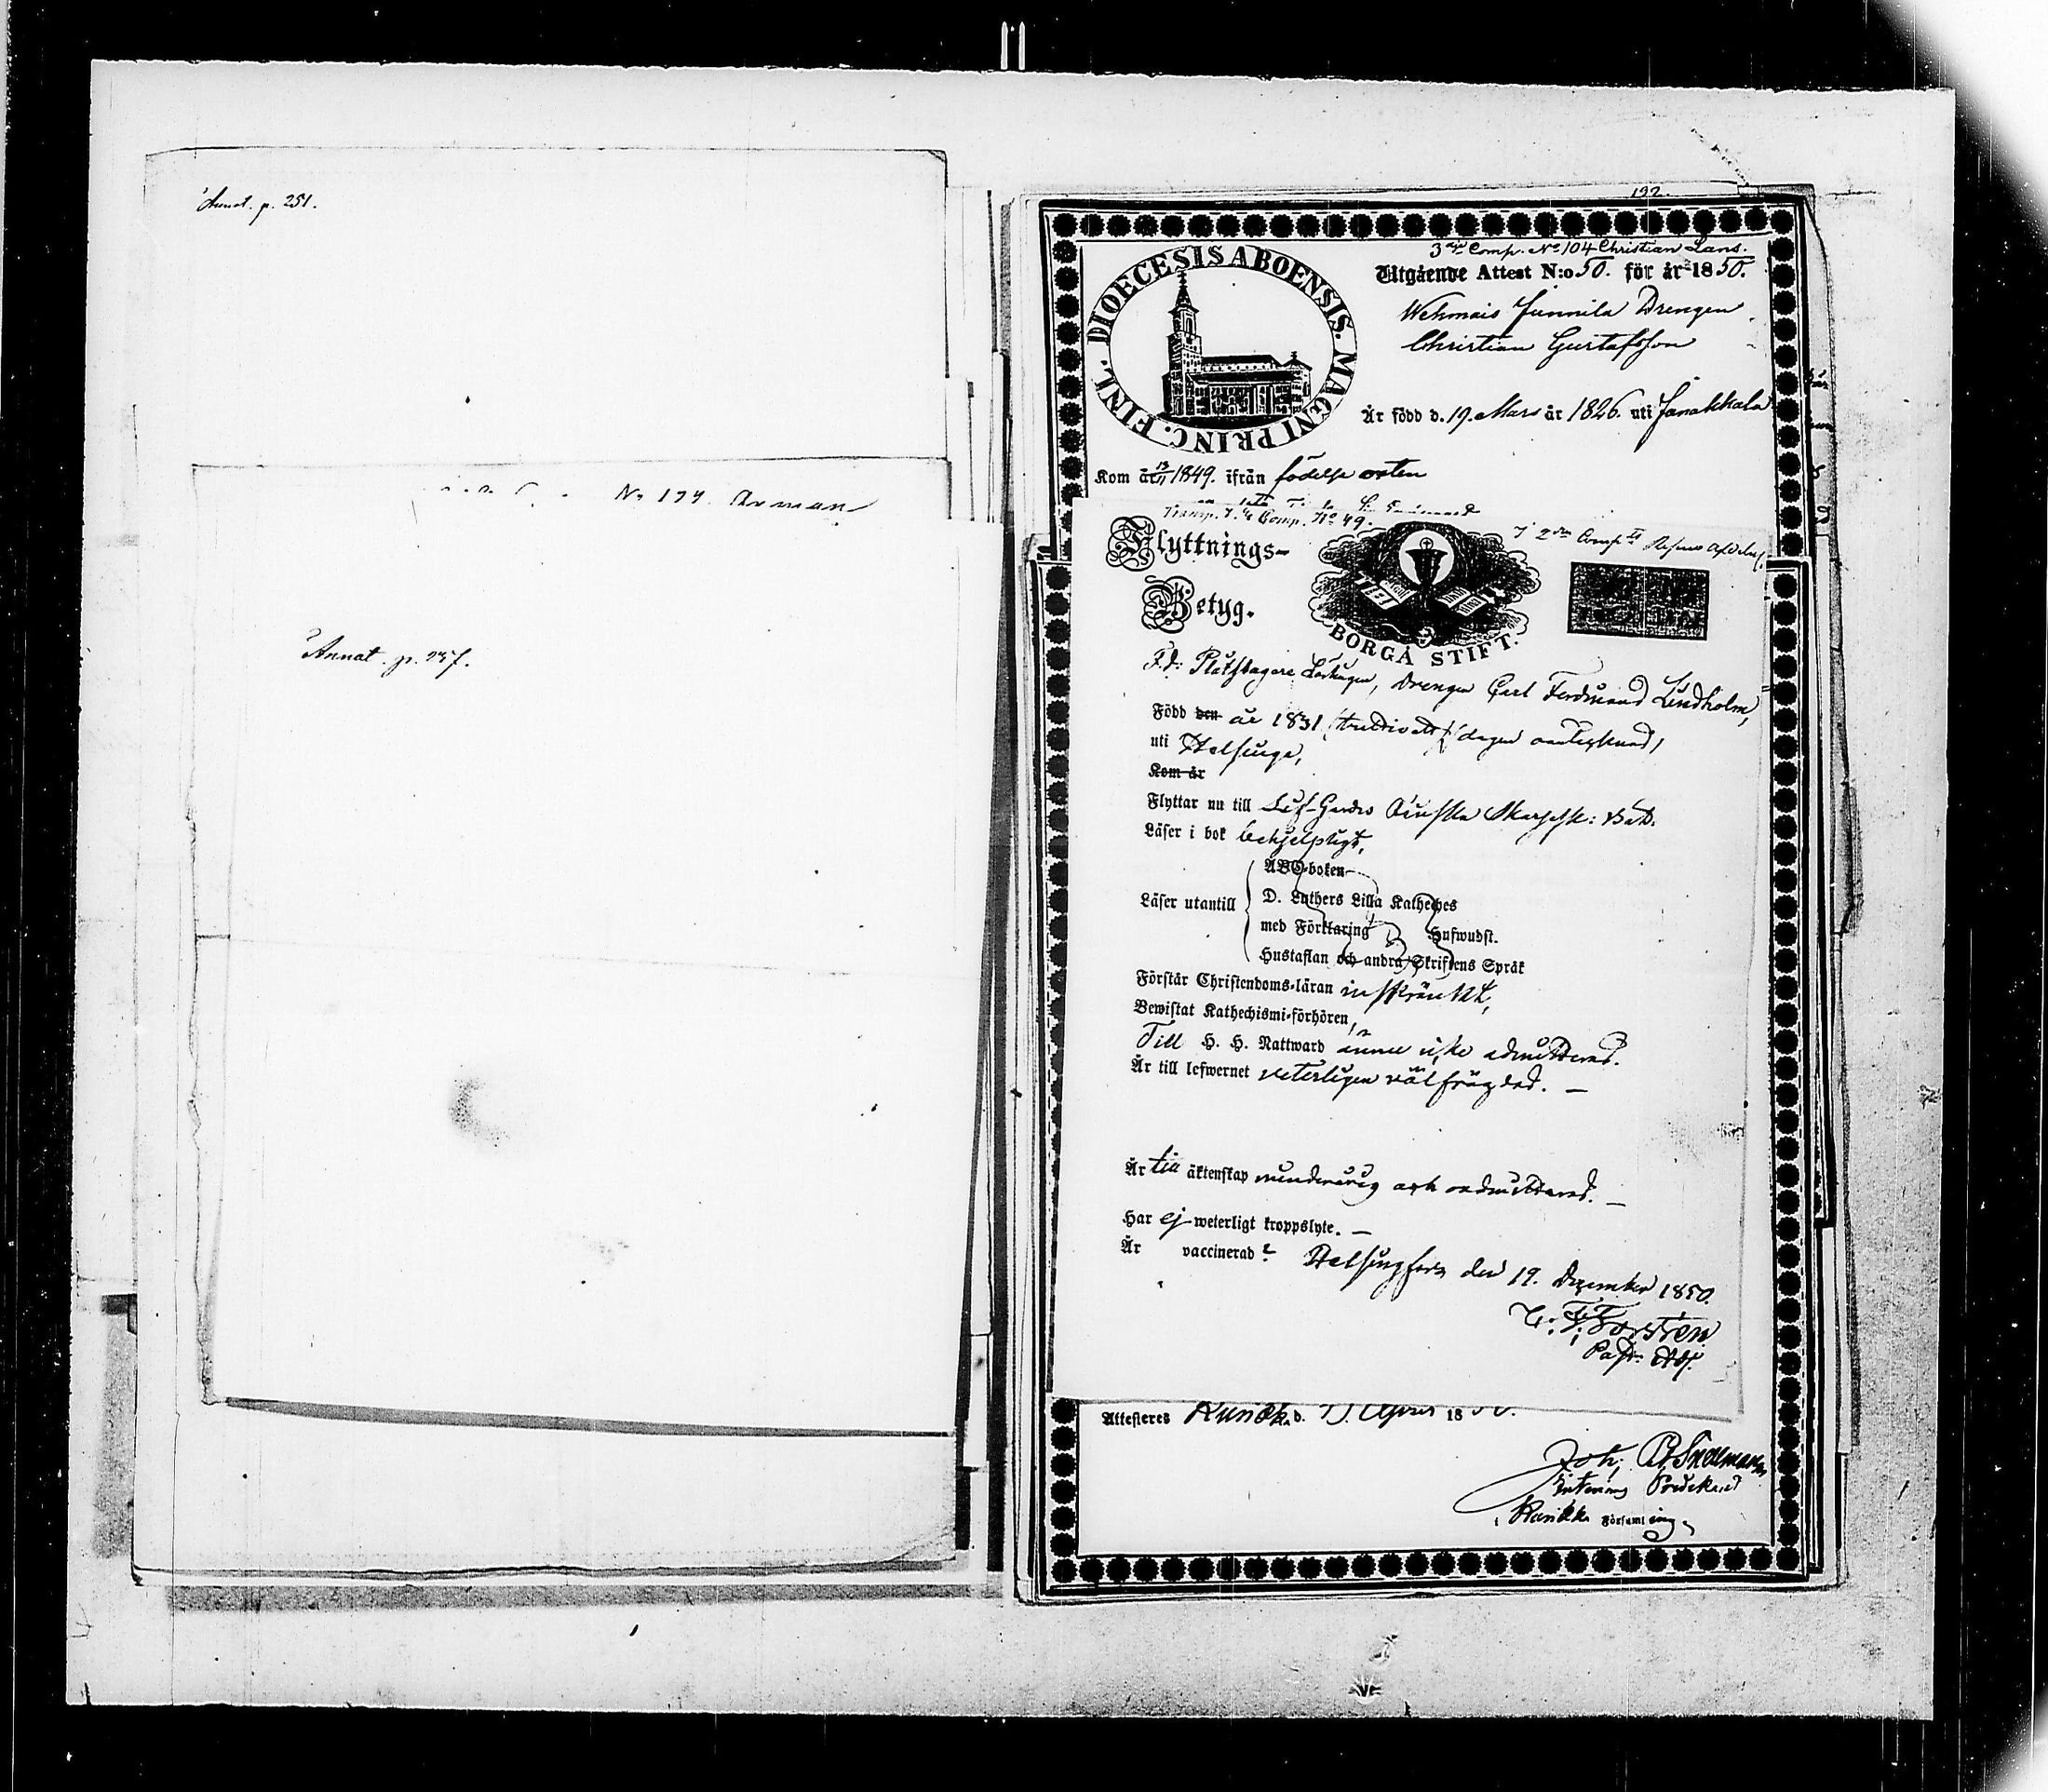 Annot. p. 251.
No 174. Arman
Annat. p. 257.
122.
3dje Comp. No 104 Christian Lans.
DIOECESIS ABOENSIS. MAGNI PRINC. FINL.
Utgående Attest N:o 50. för år 1850.
Wehmais Junnila Drengen
Christian Gustafsson
Är född d. 19. Mars år 1826. uti Janakkala
Kom år 13/11 1849. ifrån födelse orten
Transp. T. Comp. No 49.
Flyttnings-
Betyg.
BORGÅ STIFT.
F.d: Drengen Carl Ferdinand Lindholm,
Född den år 1831 dagen
uti Helsinge,
Kom år
Flyttar nu till Lif-Gardes Finska Skarpsk: Bat.
Läser i bok behjelpligt,
ABC-boken
Läser utantill D. Luthers Lilla Katheches
med Förklaring Hufwudst.
Hustaflan och andra Skriftens Språk
Förstår Christendoms-läran inskränkt,
Bewistat Kathechismi-förhören,
Till H. H. Nattward ännu icke admitterad.
Är till lefwernet veterligen välfrägdad. —
Är till äktenskap minderårig och oadmitterad. —
Har ej weterligt kroppslyte. —
Är vaccinerad? Helsingfors den 19. December 1850.
C. F. Forstén
Past. Adj.
Attesteras d. April 18
Joh.
Predikant
i Församling